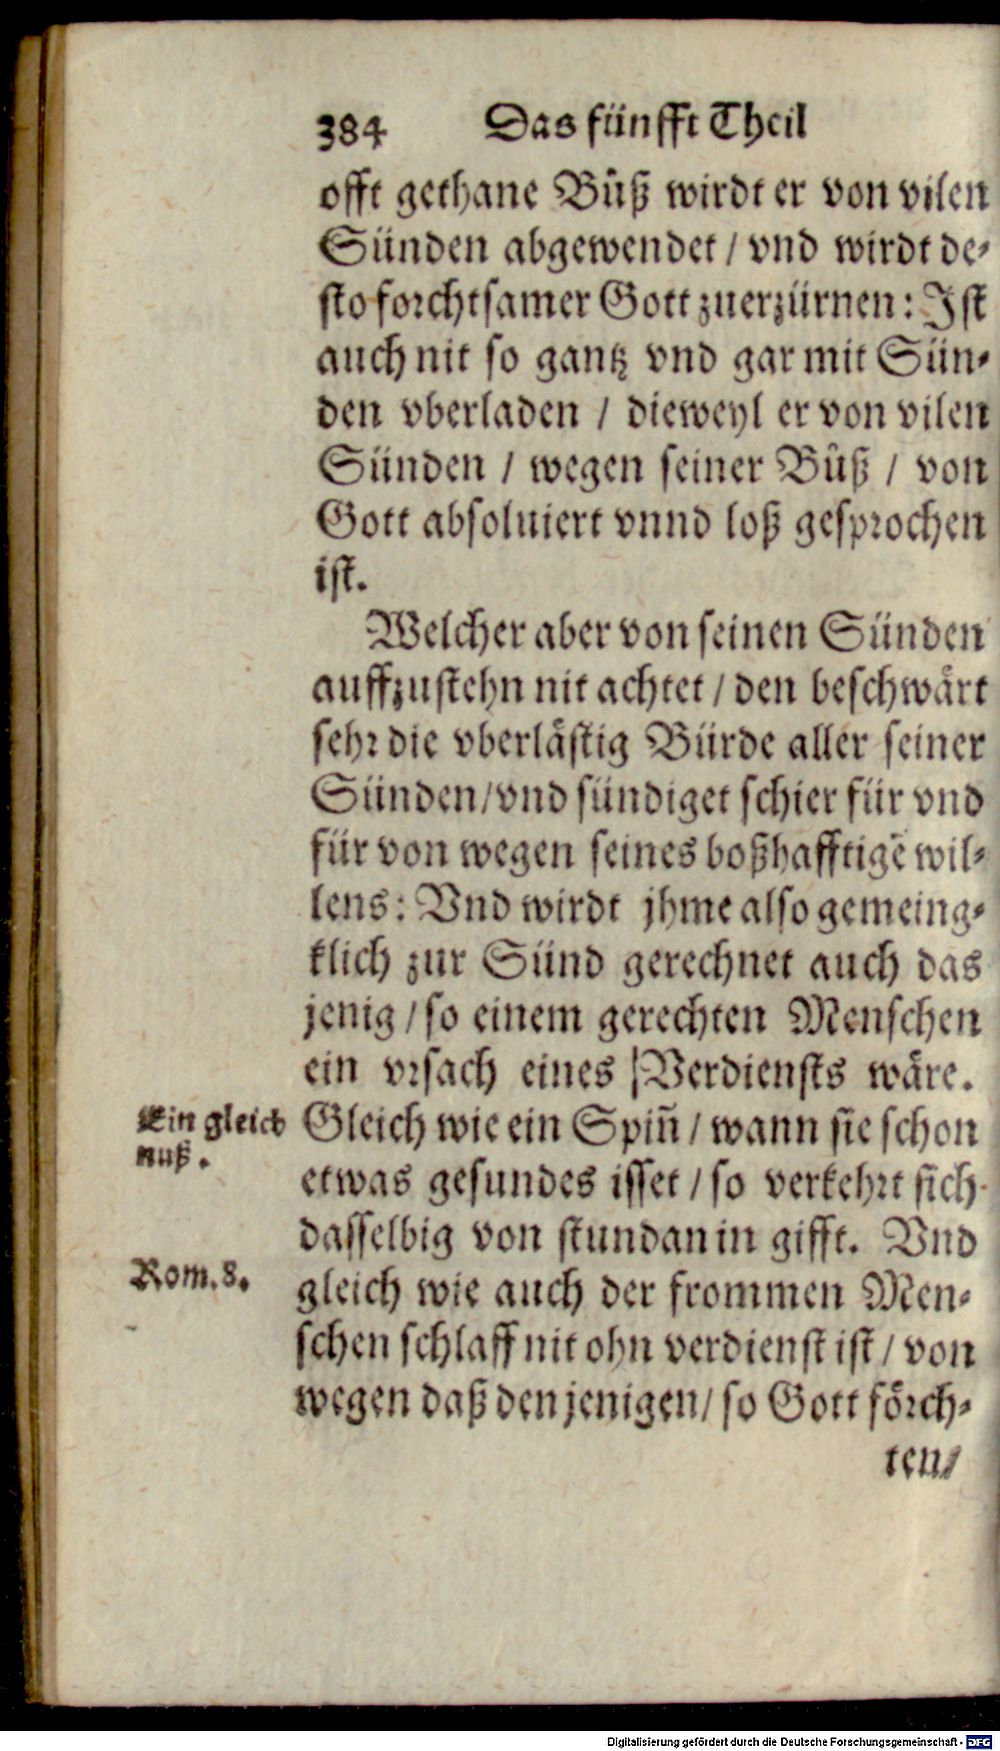 384 Das fünfft Theil
offt gethane Bůß wirdt er von vilen
Sünden abgewendet / vnd wirdt de⸗
sto forchtsamer Gott zuerzürnen: Ist
auch nit so gantz vnd gar mit Sün⸗
den vberladen / dieweyl er von vilen
Sünden / wegen seiner Bůß / von
Gott absoluiert vnnd loß gesprochen
ist.
Welcher aber von seinen Sünden
auffzustehn nit achtet / den beschwärt
sehr die vberlästig Bürde aller seiner
Sünden / vnd sündiget schier für vnd
für von wegen seines boßhafftigē wil⸗
lens: Vnd wirdt jhme also gemeing⸗
klich zur Sünd gerechnet auch das
jenig / so einem gerechten Menschen
ein vrsach eines Verdiensts wäre.
Ein gleich
nuß.
Gleich wie ein Spiñ / wann sie schon
etwas gesundes isset / so verkehrt sich
dasselbig von stundan in gifft. Vnd
Rom. 8.
gleich wie auch der frommen Men⸗
schen schlaff nit ohn verdienst ist / von
wegen daß den jenigen / so Gott förch⸗
ten /
Digitalisierung gefördert durch die Deutsche Forschungsgemeinschaft - DFG